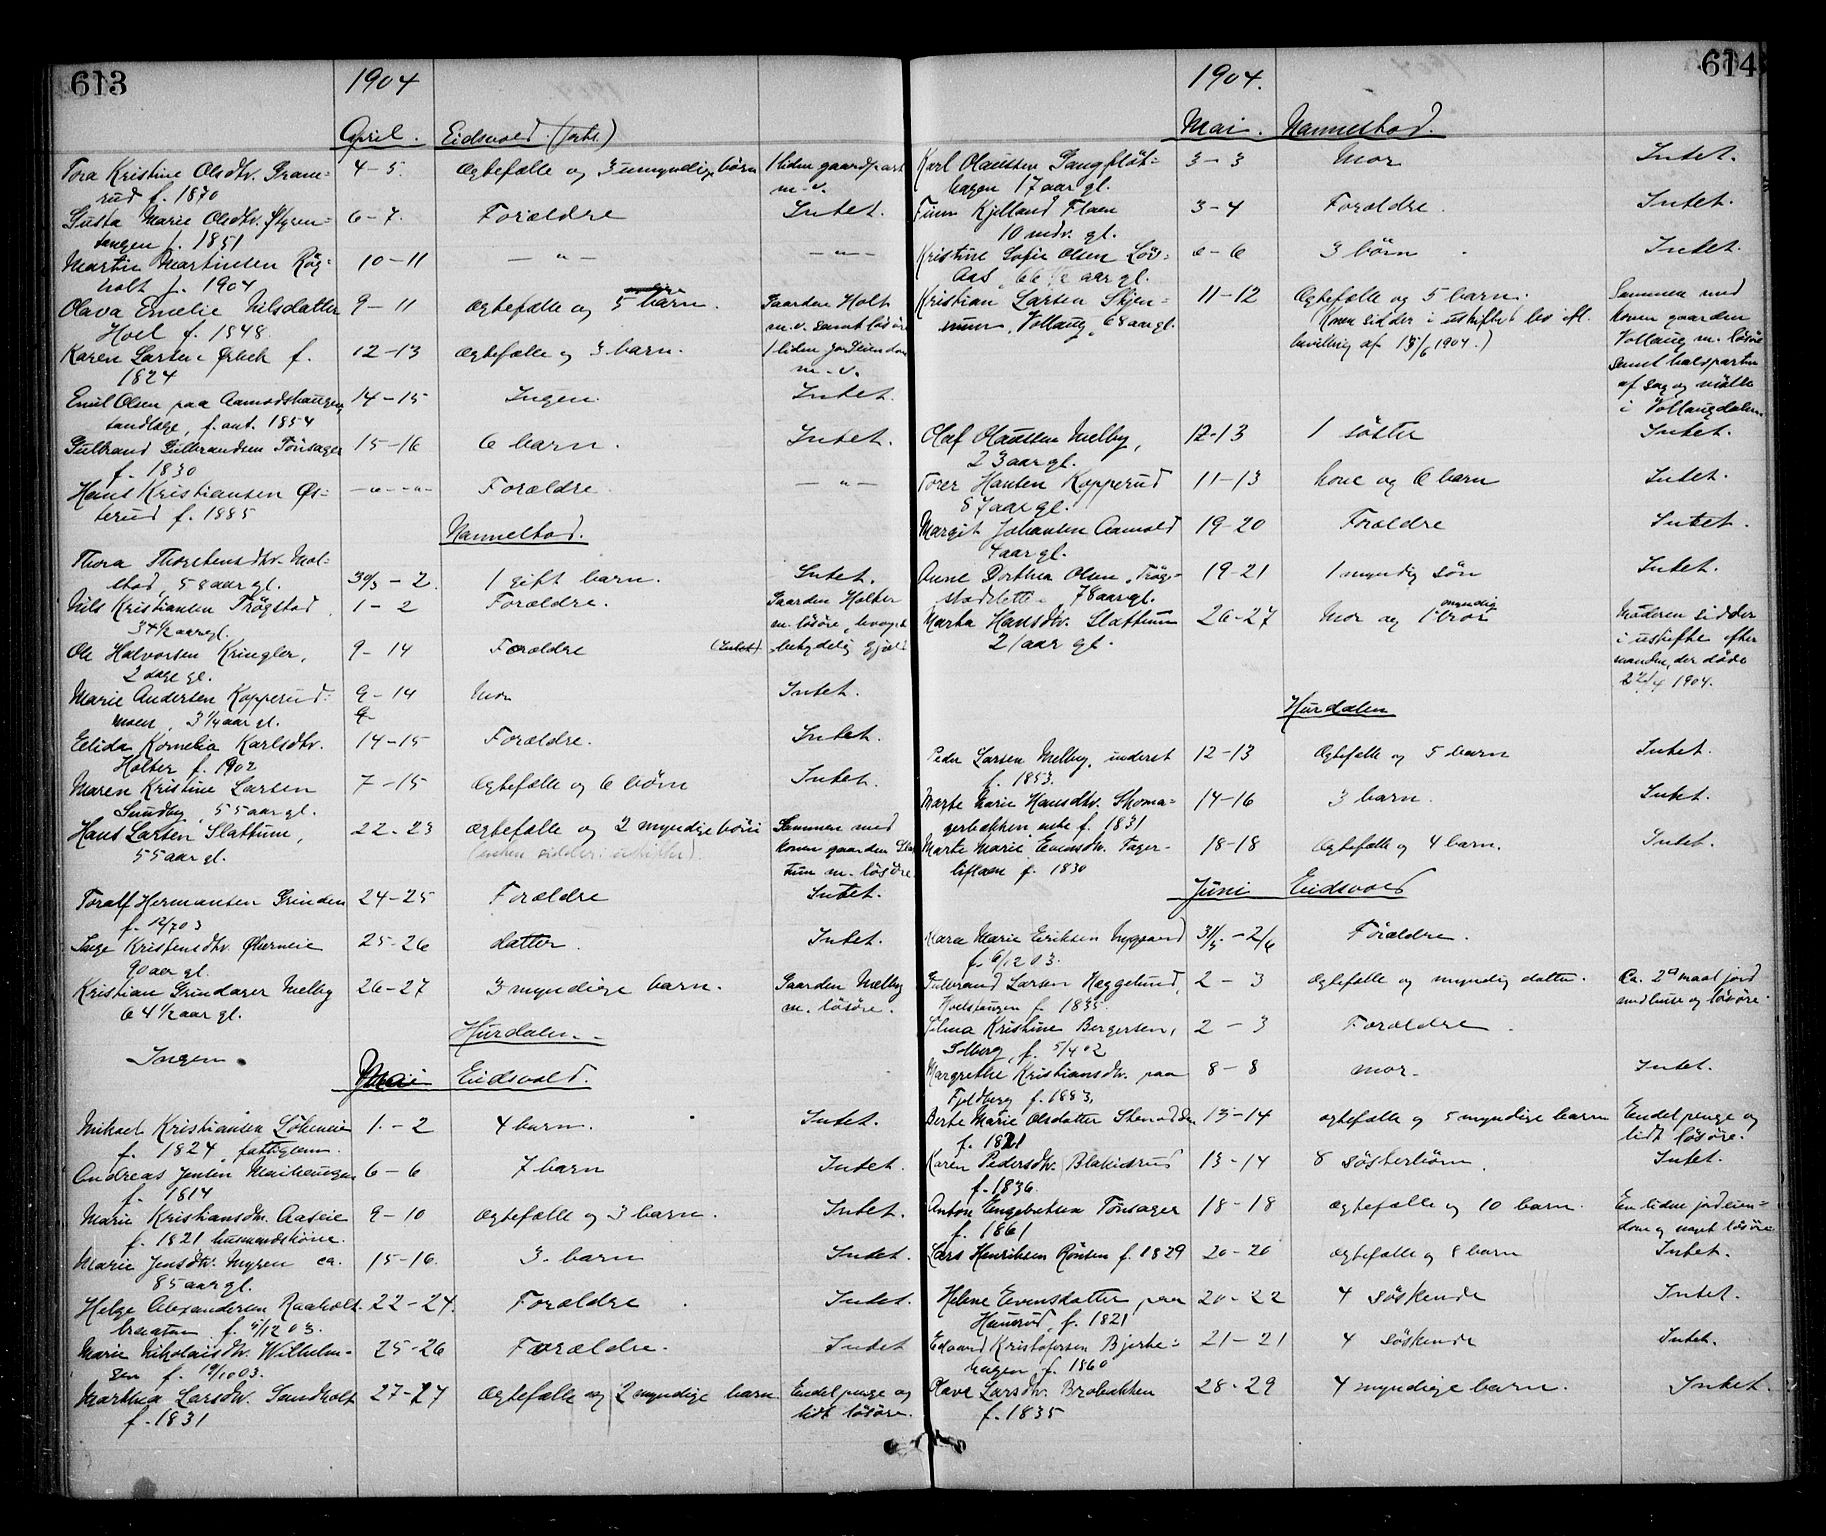 613
1904
April. Eidsvold. (forts.)
Tora Kristine Olsdtr. Bram=
rud f. 1870
4-5. Ægtefælle og 3 umyndige børn
1 liden gaardpart
m. v.
Gusta Marie Olsdtr. Styren=
tangen f. 1851
6-7. Forældre Intet.
Martin Martinsen Røg=
holt f. 1904
10-11 — " — — " —
Olava Emelie Nilsdatter
Hoel f. 1848.
9-11 Ægtefælle og 5 barn.
Gaarden Holt
m. v. samt løsøre
Karen Larsen Ørbek f.
1824
12-13 Ægtefælle og 3 barn.
1 liden jordeiendom
m. v.
Emil Olsen paa Aamodthaugen
tandlæge, f. ant. 1854
14-15 Ingen. Intet.
Gulbrand Gulbrandsen Tønsager
f. 1830
15-16 6 barn. Intet.
Hans Kristiansen Øs=
terud f. 1885
— " — " — Forældre. — " —
Nannestad.
Thora Thorstensdtr. Mol=
stad, 58 aar gl.
30/3 - 2. 1 gift barn. Intet.
Nils Kristiansen Trøgstad
34 1/2 aar gl.
1-2 Forældre.
Gaarden Holter
m. løsøre,
betydelig gjæld
Ole Halvorsen Kringler,
2 dage gl.
9-14 Forældre (Intet)
Marie Andersen Kopperud=
moen, 3 1/4 aar gl.
9-14 Mor Intet.
Elida Kornelia Karlsdtr.
Holter f. 1902
14-15 Forældre. Intet.
Maren Kristine Larsen
Sundby, 55 aar gl.
7-15 Ægtefælle og 6 børn Intet.
Hans Larsen Slattum,
55 aar gl.
22-23 Ægtefælle og 2 myndige børn
(enken sidder i uskiftet).
Sammen med
konen gaarden Slat
tum m. løsøre.
Toralf Hermansen Grinden
f. 12/7 03
24-25 Forældre Intet.
Inge Kristensdtr. Østerneie
90 aar gl.
25-26 datter. Intet.
Kristian Grindager Melby
64 1/2 aar gl.
26-27 3 myndige barn.
Gaarden Melby
m. løsøre.
Hurdalen.
Ingen.
Mai Eidsvold.
Mikael Kristiansen Løkeneie
f. 1824, fattiglem.
1.-2 4 barn. Intet.
Andreas Jensen Maihaugen
f. 1814
6-6 7 barn Intet.
Marie Kristiansdtr. Aaseie
f. 1821 husmandskone.
9-10 Ægtefælle og 3 barn. Intet.
Marie Jensdtr. Myren ca.
85 aar gl.
15-16. 3. barn Intet.
Helge Alexandersen Raaholt
f. 5/12 03.
22-24. Forældre Intet.
Marie Nikolaisdtr. Wilhelm-
sen f. 19/10 03.
25-26 Forældre. Intet
Marthea Larsdtr. Sandholt
f. 1831
27-27 Ægtefælle og 2 myndige barn
Endel penge og
lidt løsøre.
614
1904.
Mai. Nannestad.
Karl Olausen Sangfløt=
hagen 17 aar gl.
3-3 Mor Intet.
Finn Kjelland Flaen
10 mdr. gl.
3-4 Forældre. Intet.
Kristine Sofie Olsen Løv=
Aas, 66 1/2 aar gl.
6-6 3 børn Intet.
Kristian Larsen Skjen=
num, Vollaug, 68 aar gl.
11-12 Ægtefælle og 5 barn.
Konen sidder i uskiftet bo ifl.
bevilling af 15/6 1904.)
Sammen med
konen gaarden
Vollaug m. løsøre
samt halvparten
af sag og mølle
i Vollaugdalen.
Olaf Olaussen Melby,
23 aar gl.
12-13 1 søster Intet.
Torer Hansen Kopperud
57 aar gl.
11-13 kone og 6 barn Intet.
Margit Johansen Aamold
4 aar gl.
19-20 Forældre Intet.
Anne Dorthea Olsen, Trøg=
stadslette 78 aar gl.
19-21 1 myndig søn Intet.
Marta Hansdtr. Slattum
21 aar gl.
26-27 Mor og 1 myndig bror
Moderen sidder
i uskifte efter
manden, der døde
22/4 1904.
Hurdalen
Peder Larsen Melby, inderst
f. 1853.
12-13 Ægtefælle og 5 barn Intet.
Marte Marie Hansdtr. Skoma=
gerbakken, enke f. 1831
14-16 3 barn. Intet.
Marte Marie Evensdtr. Fager-
liflaen f. 1830
18-18 Ægtefælle og 4 barn. Intet.
Juni Eidsvold
Kara Marie Eriksen Nygaard
f. 6/12 03.
31/5. - 2/6 Forældre.
Gulbrand Larsen Hæggelund,
Hoelstangen f. 1835.
2 - 3 Ægtefælle og myndig datter.
Ca. 2 maal jord
med huse og løsøre.
Selma Kristine Bergersen,
Solberg, f. 5/4 02
2 - 3 Forældre.
Margrethe Kristiansdtr. paa
Fjeldberg f. 1883.
8-8 mor. Intet.
Berte Marie Olsdatter Stenodden
f. 1821
13-14 Ægtefælle og 5 myndige barn
Endel penge og
lidt løsøre.
Karen Pedersdtr. Blakidrud
f. 1836.
13-14 8 søsterbørn. Intet.
Anton Engebretsen Tønsager
f. 1861
18-18 Ægtefælle og 10 barn.
En liden jordeien=
dom og noget løsøre
Lars Henriksen Rønsen f. 1829 20-20 Ægtefælle og 8 barn Intet.
Helene Evensdatter paa
Haurud, f. 1821
20-22 4 søskende Intet.
Edvard Kristofersen Bjerke=
hagen f. 1860
21-21 4 søskende Intet.
Olave Larsdtr. Brobakken
f. 1835
28-29 4 myndige barn. Intet.